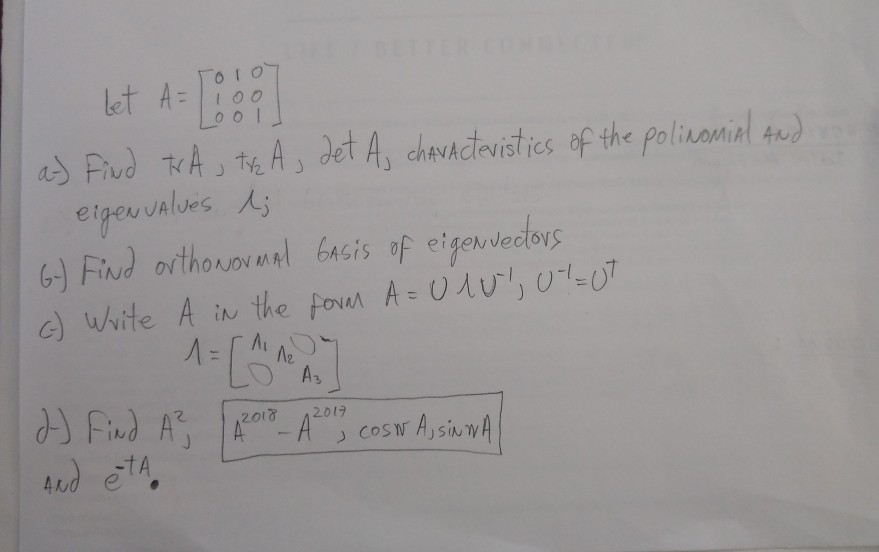 Let A = [0 1 0
1 0 0
0 0 1]
a-) Find trA, tr₂A, det A, chAracteristics of the poliNomiAl ANd
eigenvAlues λj
b-) Find orthoNormAl bAsis of eigenvectors
c-) Write A iN the form A = UΛU⁻¹, U⁻¹=U^T
Λ = [Λ₁ 0
Λ₂
0 Λ₃]
d-) Find A², A^2018 - A^2019, cosπA, sinπA
ANd e^-tA.